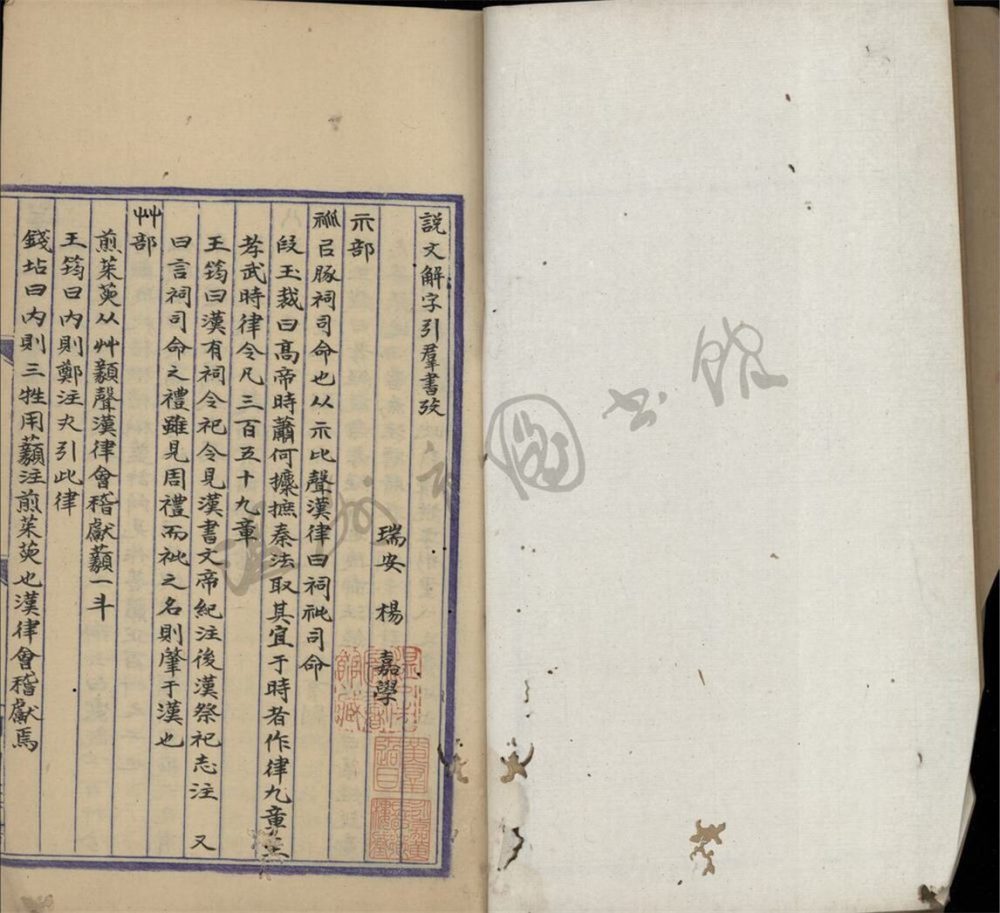 說文解字引羣書攷
瑞安 楊 嘉學
示部
祉㠯豚祠司命也从示比聲漢律曰祠祉司命
段玉裁曰高帝時蕭何攗摭秦法取其宜于時者作律九章至
孝武時律令凡三百五十九章
王筠曰漢有祠令祀令見漢書文帝紀注後漢祭祀志注 又
曰言祠司命之禮雖見周禮而祉之名則肇于漢也
艸部
煎茱萸从艸顡聲漢律會稽獻藙一斗
王筠曰內則鄭注亦引此律
錢坫曰內則三牲用藙注煎茱萸也漢律會稽獻焉
溫州圖書館